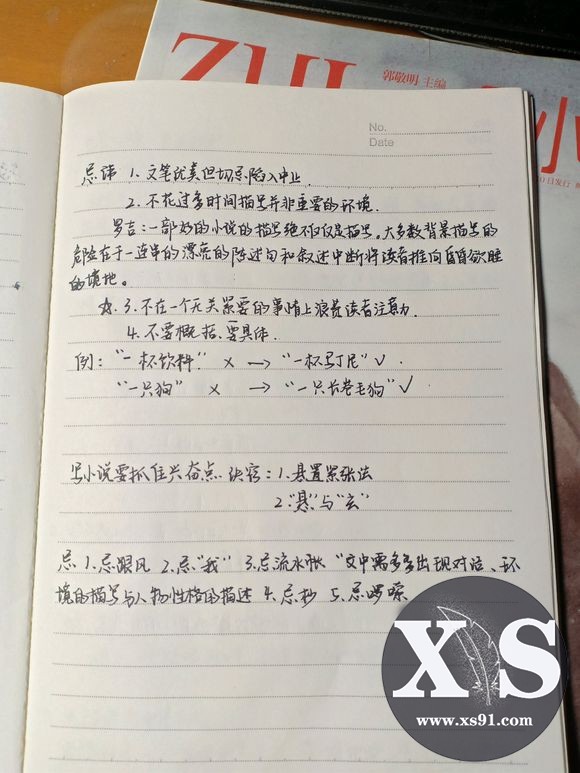 ZUI
郭敬明 主编
小
No.
Date
忌讳 1、文笔优美但切忌陷入中止.
2、不花过多时间描写并非重要的环境.
罗吉:一部好的小说的描写绝不仅仅是描写。大多数背景描写的
危险在于一连串的漂亮的陈述句和叙述中断将读者推向昏昏欲睡
的境地。
☆. 3. 不在一个无关紧要的事情上浪费读者注意力.
4. 不要概括、要具体.
例:“一杯饮料” × → “一杯马丁尼”√.
“一只狗” × → “一只长卷毛狗”√
写小说要抓住兴奋点 诀窍:1. 悬置紧张法
2.“悬”与“玄”
忌 1.忌跟风 2.忌“我” 3.忌流水帐 “文中需多多出现对话、环
境的描写与人物性格的描述 4.忌抄 5.忌啰嗦
XS
www.xs91.com